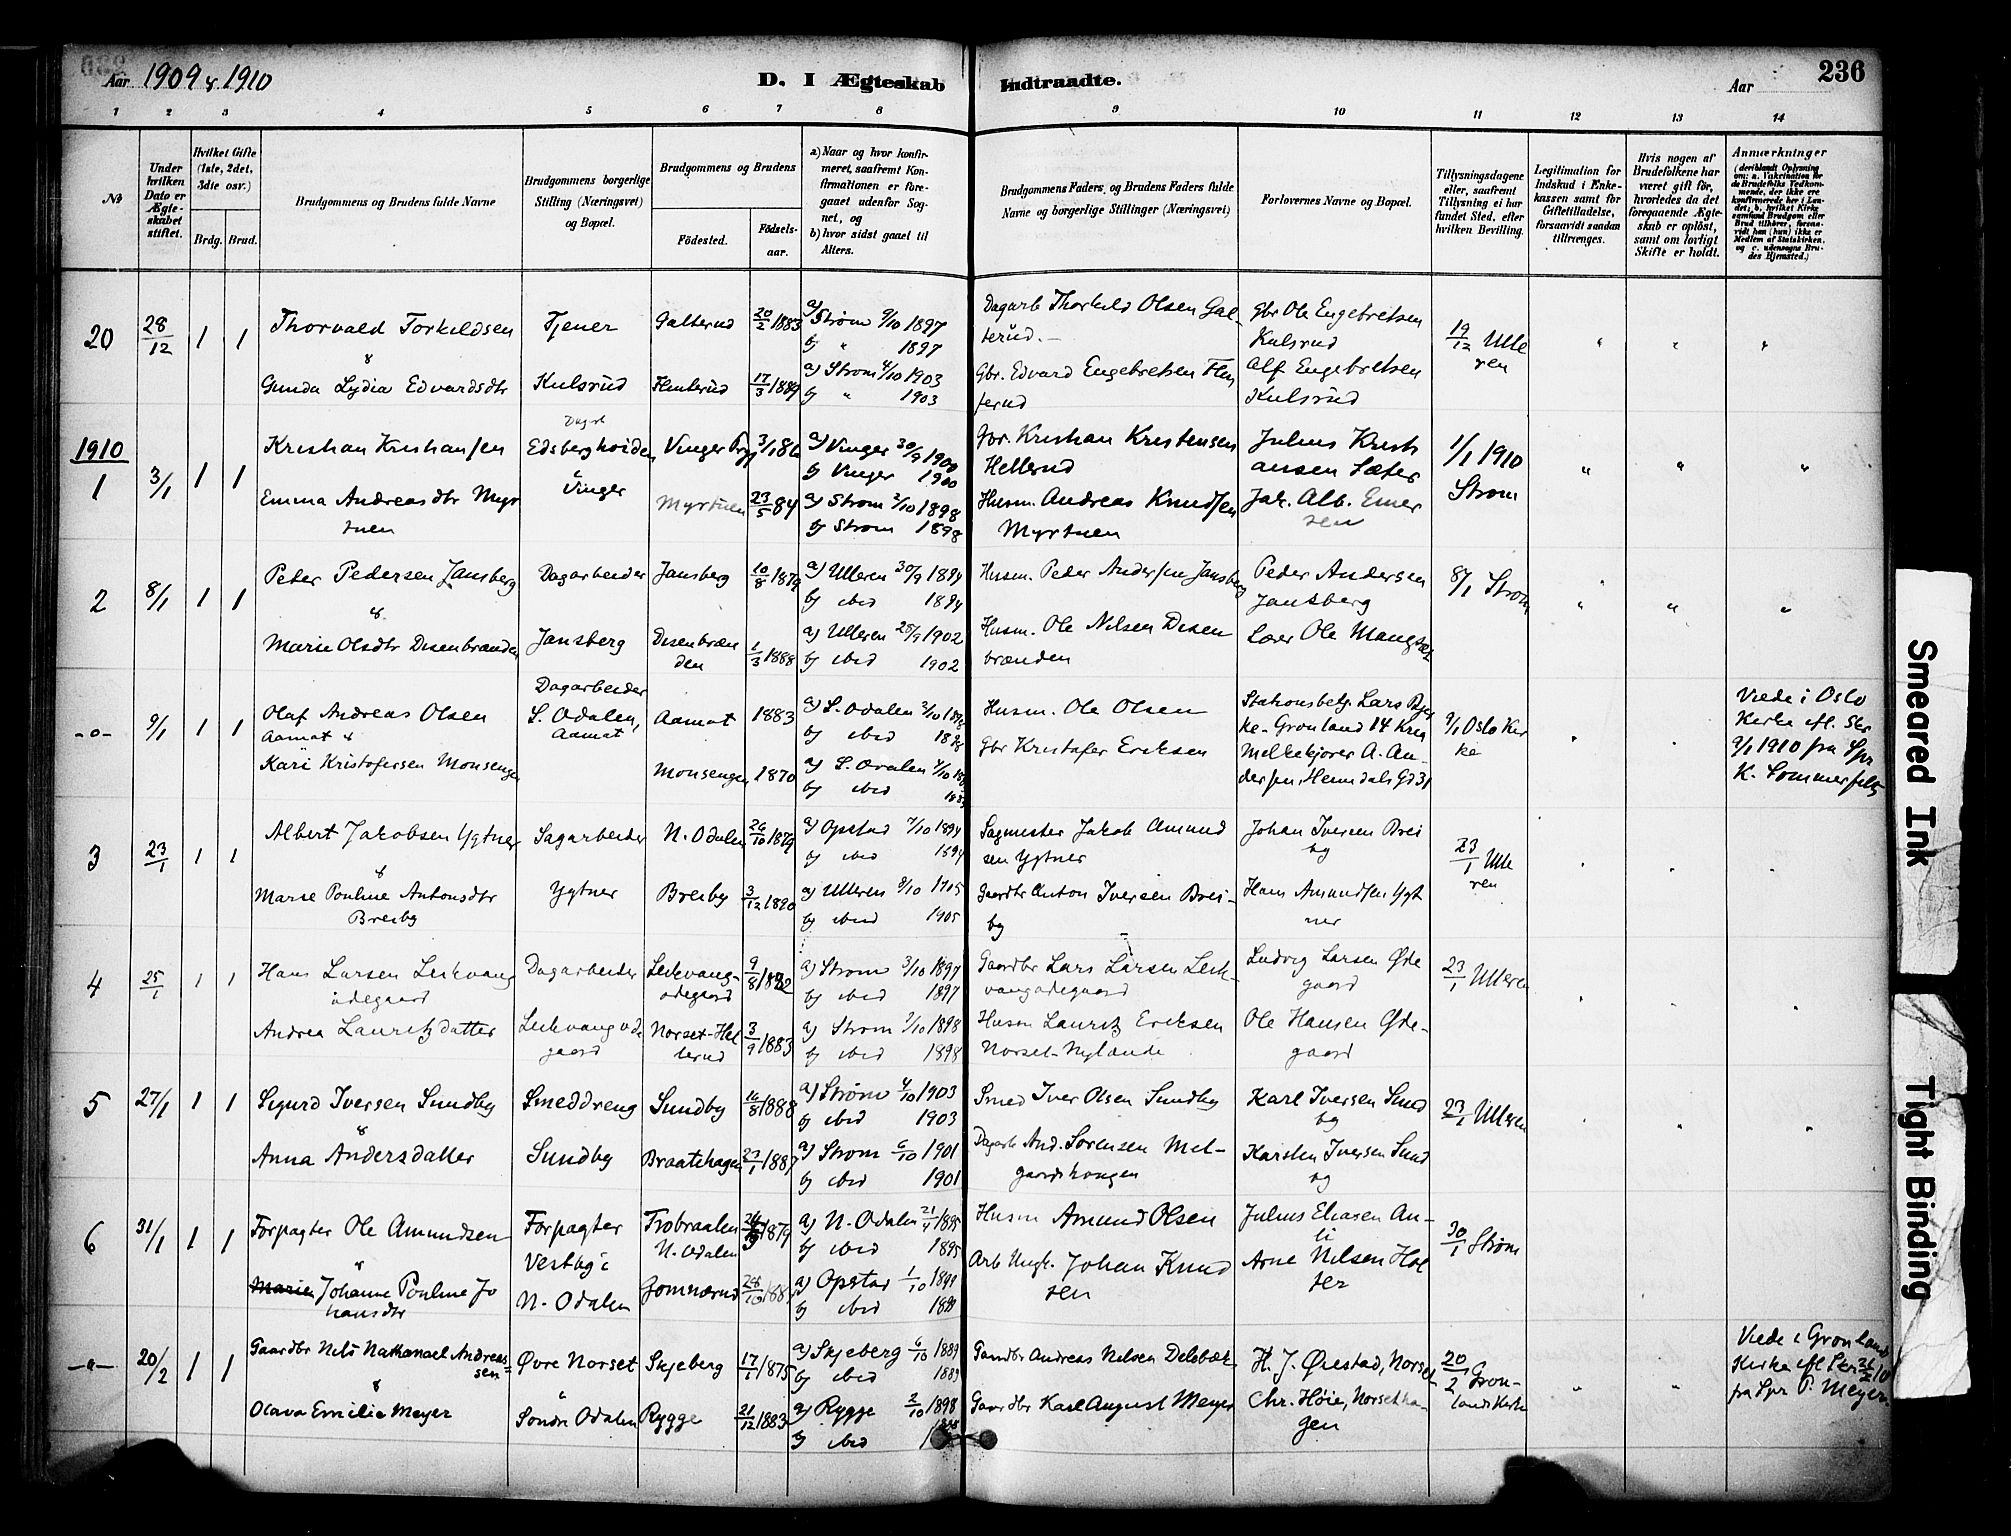 Aar 1909 & 1910
D. I Ægteskab
Indtraadte.
Aar
236
1 2 3 4 5 6 7 8 9 10 11 12 13 14
No
Under hvilken Dato er Ægteskabet stiftet.
Hvilket Gifte (1ste, 2det, 3die osv.)
Brdg. Brud.
Brudgommens og Brudens fulde Navne
Brudgommens borgerlige Stilling (Næringsvei) og Bopæl.
Brudgommens og Brudens
Födested.
Födselsaar.
a) Naar og hvor konfirmeret, saafremt Konfirmationen er foregaaet udenfor Sognet, og
b) hvor sidst gaaet til Alters.
Brudgommens Faders og Brudens Faders fulde Navne og borgerlige Stillinger (Næringsvei)
Forlovernes Navne og Bopæl.
Tillysningsdagene eller, saafremt Tillysning ei har fundet Sted, efter hvilken Bevilling.
Legitimation for Indskud i Enkekassen samt for Giftetilladelse, forsaavidt saadan tiltrænges.
Hvis nogen af Brudefolkene har været gift för, hvorledes da det foregaaende Ægteskab er oplöst, samt om lovligt Skifte er holdt.
Anmærkninger
20 28/12 1 1 Thorvald Torkildsen Tjener Galterud 20/2 1883 a) Strøm 9/10 1897
b) " 1897
Dagarb Thorkild Olsen Galterud.
Gbr Ole Engebretsen Kulsrud
19/12 Ulleren
&
Gunda Lydia Edvardsdtr Kulsrud 17/3 1889 a) Strøm 4/10 1903
b) " 1903
Gbr. Edvard Engebretsen
Alf Engebretsen Kulsrud
1910
1 3/1 1 1 Kristian Kristiansen Vinger 3/1 86 a) Vinger 30/9 1900
b) Vinger 1900
Gbr. Kristian Kristensen Hellerud
Julius Kristiansen Sæter
1/1 1910 Strøm
Emma Andreasdtr Myrtuen Vinger Myrtuen 23/5 84 a) Strøm 2/10 1898
b) Strøm 1898
Husm. Andreas Knudsen Myrtuen
Jak. Alb. Emersen
2 8/1 1 1 Peter Pedersen Jansberg Dagarbeider Jansberg 10/8 1879 a) Ulleren 30/9 1894
b) ibid 1894
Husm. Peder Andersen Jansberg
Peder Andersen Jansberg
8/1 Strøm
&
Marie Olsdtr Disenbrænden Jansberg Disenbrænden 1/3 1888 a) Ulleren 28/9 1902
b) ibid 1902
Husm. Ole Nilsen Disenbrænden
Lærer Ole Mangset
-o- 9/1 1 1 Olaf Andreas Olsen Aamot & Dagarbeider S. Odalen, Aamot Aamot 1883 a) S. Odalen
b) ibid
Husm. Ole Olsen
Stationsbetj. Lars Bjerke - Grønland 14 Kria
9/1 Oslo Kirke
Viede i Oslo Kirke efl. Skr 9/1 1910 fra Spr K. Sommerfelt
Kari Kristofersen Monsengen Monsengen 1870 a) S. Odalen
b) ibid
Gbr Kristofer Eriksen
Melkekjører A. Andersen, Heimdalsgd 31
3 23/1 1 1 Albert Jakobsen Ygtner Sagarbeider N. Odalen 26/10 1879 a) Opstad 7/10 1894
b) ibid 1894
Sagmester Jakob Amundsen Ygtner
Johan Iversen Breiby
23/1 Ulleren
&
Marie Pouline Antonsdtr Breiby Ygtner Breiby 3/12 1890 a) Ulleren 8/10 1905
b) ibid 1905
Gaardbr Anton Iversen Breiby
Hans Amundsen Ygtner
4 25/1 1 1 Hans Larsen Leikvangødegaard Dagarbeider Leikvangødegaard 9/8 1882 a) Strøm 3/10 1897
b) ibid 1897
Gaardbr Lars Larsen Leikvangødegaard
Ludvig Larsen Ødegaard
23/1 Ulleren
Andrea Lauritzdatter Leikvangødegaard 3/9 1883 a) Strøm 2/10 1898
b) ibid 1898
Husm Lauritz Eriksen Norset-Nylande
Ole Hansen Ødegaard
5 27/1 1 1 Sigurd Iversen Sundby Smeddreng Sundby 16/8 1888 a) Strøm 4/10 1903
b) ibid 1903
Smed Iver Olsen Sundby
Karl Iversen Sundby
23/1 Ulleren
&
Anna Andersdatter Sundby Braatehagen 27/1 1887 a) Strøm 6/10 1901
b) ibid 1901
Dagarb And. Sørensen Melgaardshaugen
Karsten Iversen Sundby
6 31/1 1 1 Forpagter Ole Amundsen Forpagter Vestby i N. Odalen Trobraaten N. Odalen 1879 a) N. Odalen 21/4 1895
b) ibid 1895
Husm Amund Olsen
Julius Eliasen Anli
30/1 Strøm
&
Marien Johanne Pouline Johansdtr Gomnerud 28/10 a) Opstad 1/10
b) ibid
Arb Ungk. Johan Knudsen
Arne Nilsen Holter
-o- 20/2 1 1 Gaardbr Nils Nathanael Andreassen Øvre Norset i Søndre Odalen Skjeberg 17/1 1875 a) Skjeberg 6/10 1889
b) ibid 1889
Gaardbr Andreas Nilsen Delebæk
H. J. Ørestad, Norset
20/2 Grønlands Kirke
Viede i Grønland Kirke efl Skr fra Spr P. Meyer
&
Olava Emilie Meyer Rygge 21/12 1883 a) Rygge 2/10 1898
b) ibid 1898
Gaardbr Karl August Meyer
Chr. Høie, Norsethagen
Smeared Ink
Tight Binding